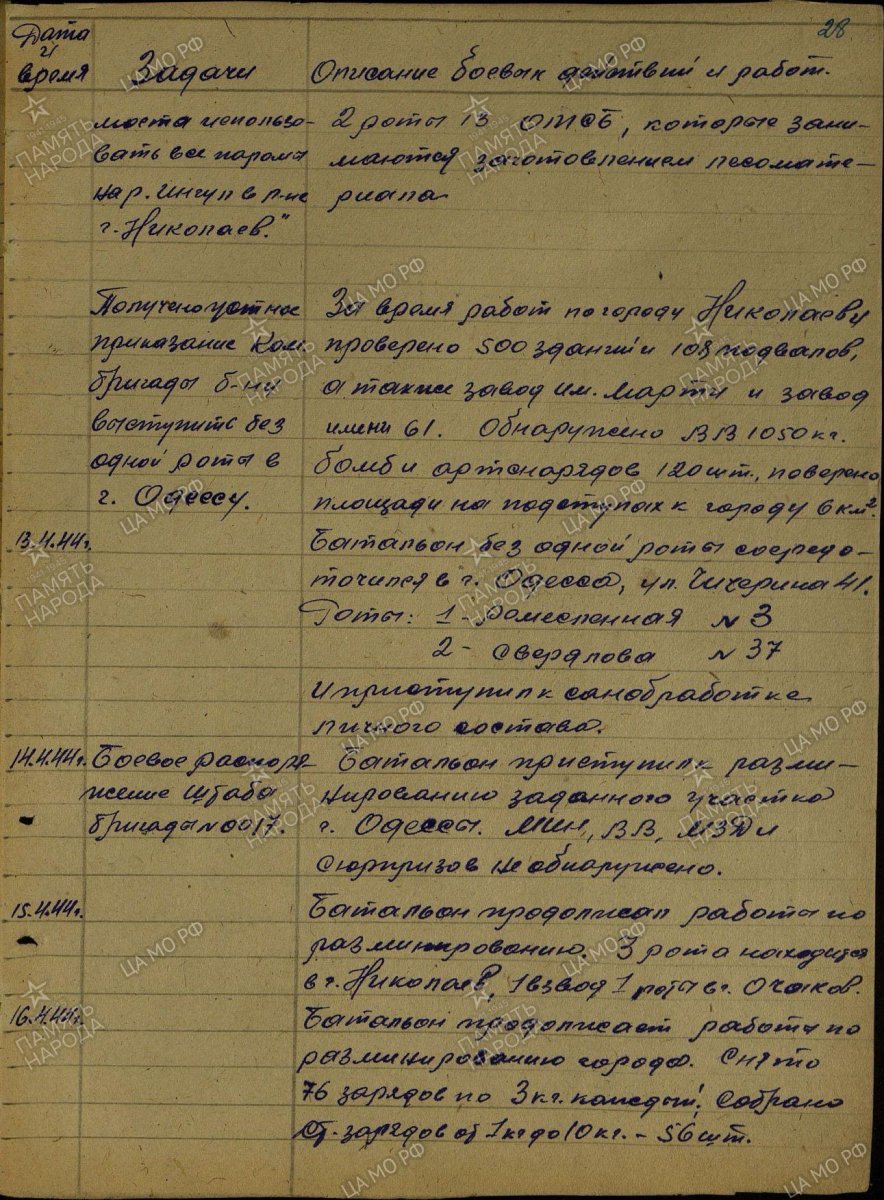 28
Дата
и
время
Задачи
Описание боевых действий и работ.
моста использо-
вать все паромы
на р. Ингул в р-не
г. Николаев."
2 роты 13 ОМСБ, которые зани-
маются заготовлением лесомате-
риала
Получено устное
приказание Ком.
бригады б-ну
выступить без
одной роты в
г. Одессу.
За время работ по городу Николаеву
проверено 500 зданий и 108 подвалов,
а также завод им. Марти и завод
имени 61. Обнаружено ВВ 1050 кг.
бомб и артснарядов 120 шт., поверено
площади на подступах к городу 6 км².
13.4.44г.
Батальон без одной роты сосредо-
точился в г. Одесса, ул. Чичерина 41.
Роты: 1 - Ремесленная N 3
2 - Свердлова N 37
и приступил к санобработке
личного состава.
14.4.44г.
Боевое распоря-
жение Штаба
бригады N 0017.
Батальон приступил к разми-
нированию заданного участка
г. Одессы. Мин, ВВ, МЗД и
сюрпризов не обнаружено.
15.4.44г.
Батальон продолжал работы по
разминированию. 3 рота находится
в г. Николаев, 1 взвод 1 роты в г. Очаков.
16.4.44г.
Батальон продолжает работы по
разминированию города. Снято
76 зарядов по 3 кг. каждый. Собрано
от. зарядов от 1 кг до 10 кг. - 56 шт.
ЦА МО РФ
ПАМЯТЬ
НАРОДА